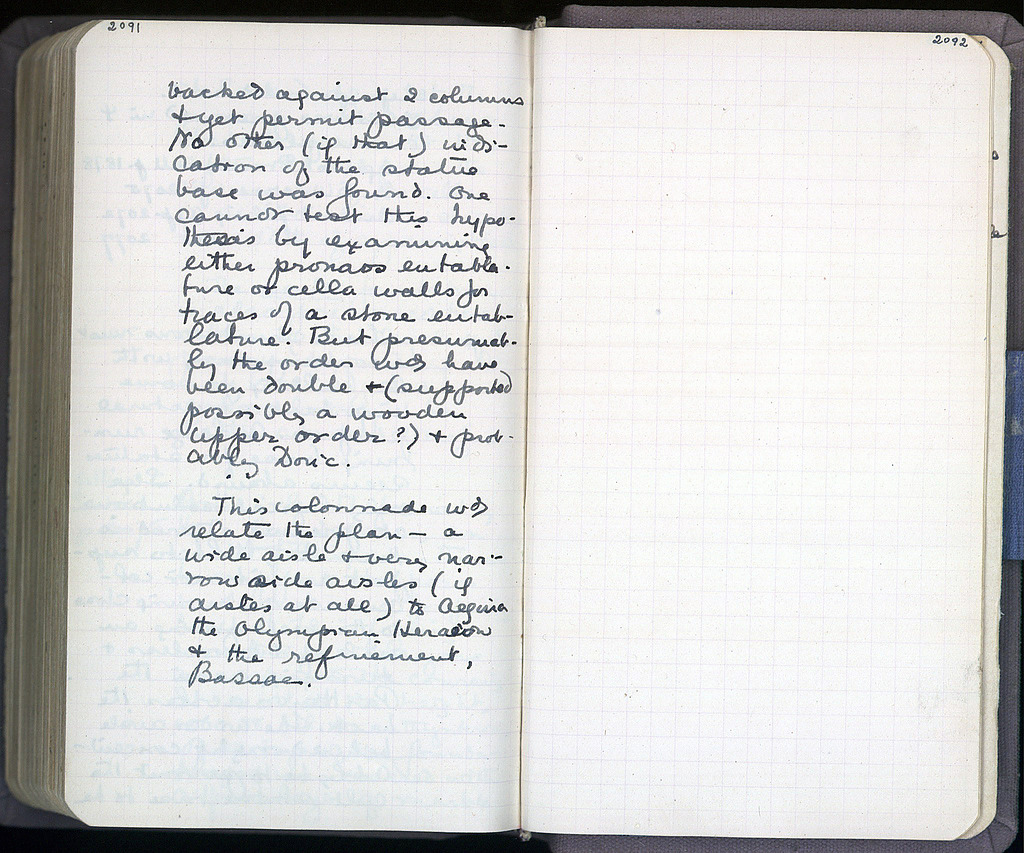 2091
backed against 2 columns
+ yet permit passage.
No other (if that) indi-
cation of the statue
base was found. One
cannot test this hypo-
thesis by examining
either pronaos entabla-
ture or cella walls for
traces of a stone entab-
lature. But presumab-
ly the order wd have
been double + (supported
possibly a wooden
upper order?) + prob-
ably Doric.
This colonnade wd
relate the plan — a
wide aisle + very nar-
row side aisles (if
aisles at all) to Aegina
the Olympian Heraion
+ the refinement,
Bassae.
2092